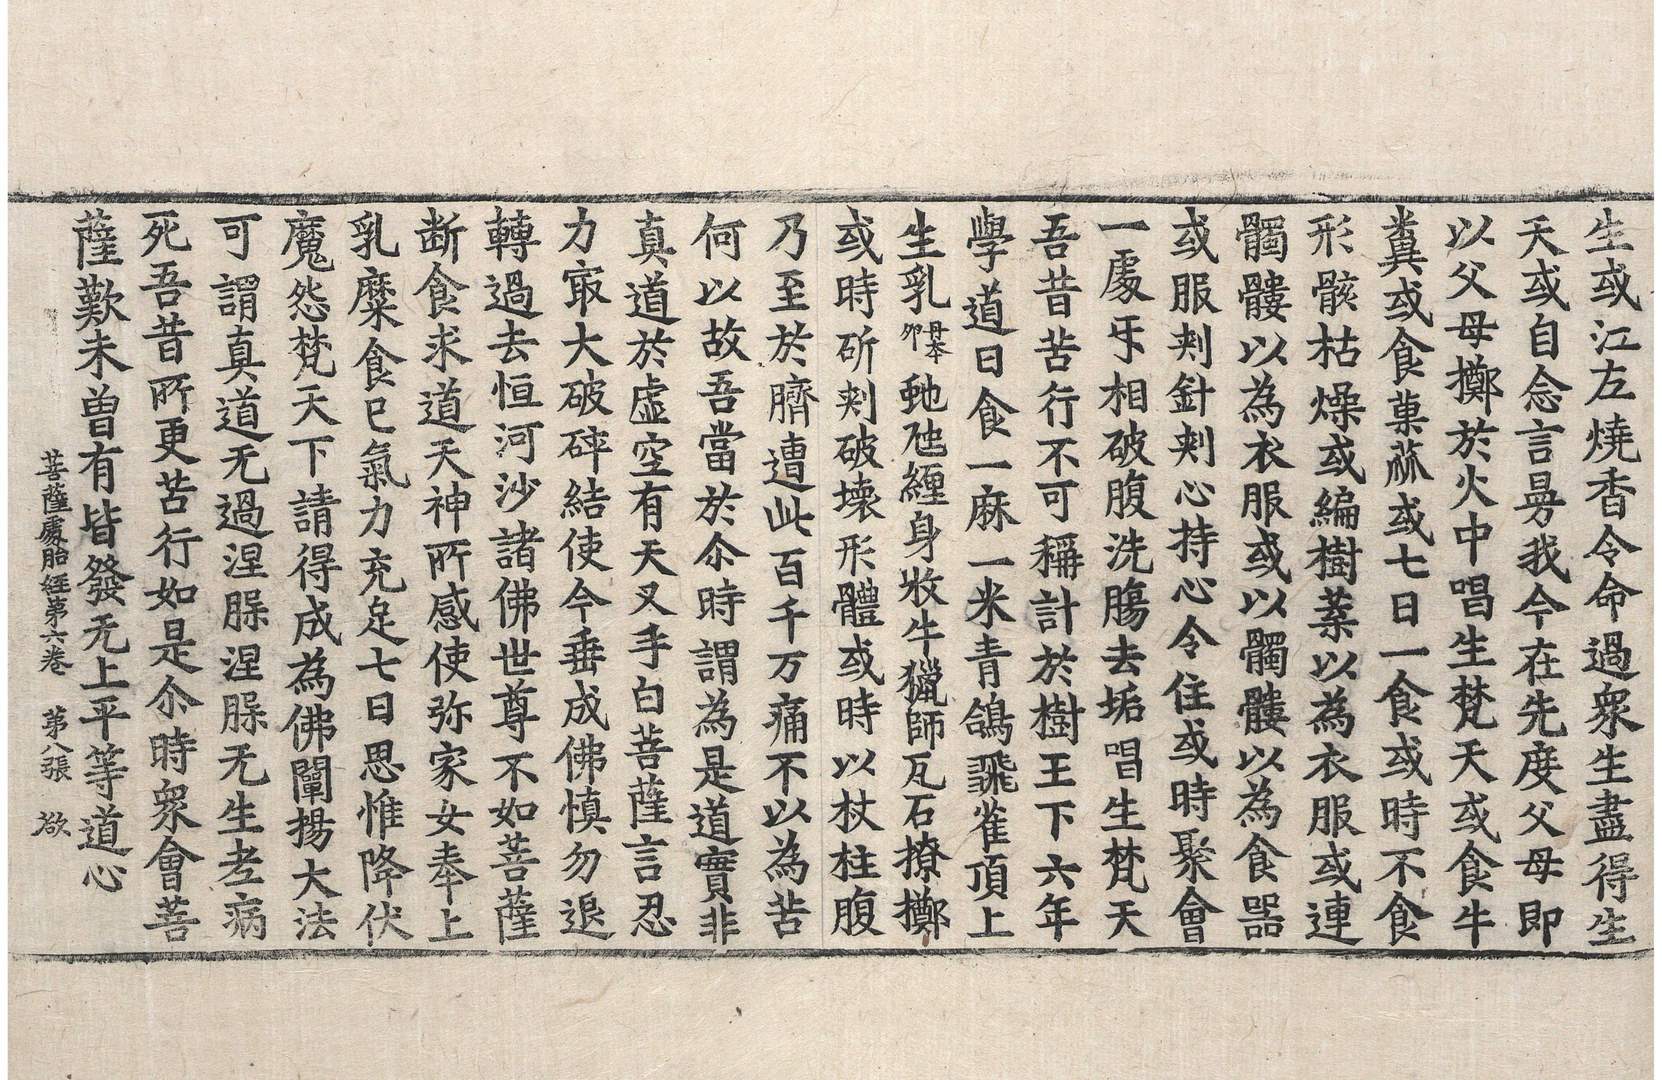 生或江左燒香令命過衆生盡得生
天或自念言曼我今在先度父母即
以父母擲於火中唱生梵天或食牛
糞或食菓蓏或七日一食或時不食
形骸枯燥或編樹葉以為衣服或連
髑髏以為衣服或以髑髏以為食器
或服刾針刾心持心令住或時聚會
一處㸦相破腹洗腸去垢唱生梵天
吾昔苦行不可稱計於樹王下六年
學道日食一麻一米青鴿飛雀頂上
生乳丹本卵虵虺纏身牧牛獵師瓦石撩擲
或時斫刾破壞形體或時以杖柱腹
乃至於臍遭此百千万痛不以為苦
何以故吾當於尒時謂為是道實非
真道於虛空有天叉手白菩薩言忍
力㝡大破碎結使今垂成佛慎勿退
轉過去恒河沙諸佛世尊不如菩薩
断食求道天神所感使弥家女奉上
乳糜食已氣力充足七日思惟降伏
魔怨梵天下請得成為佛闡揚大法
可謂真道无過涅槃涅槃无生老病
死吾昔所更苦行如是尒時衆會菩
薩歎未曽有皆發无上平等道心
菩薩處胎經第六卷 第八張 欲